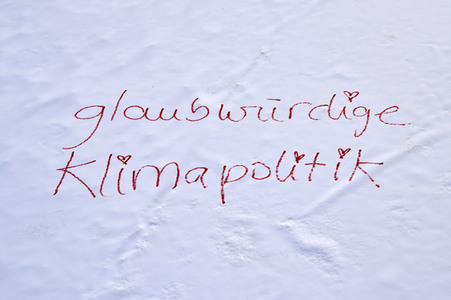 glaubwürdige
Klimapolitik